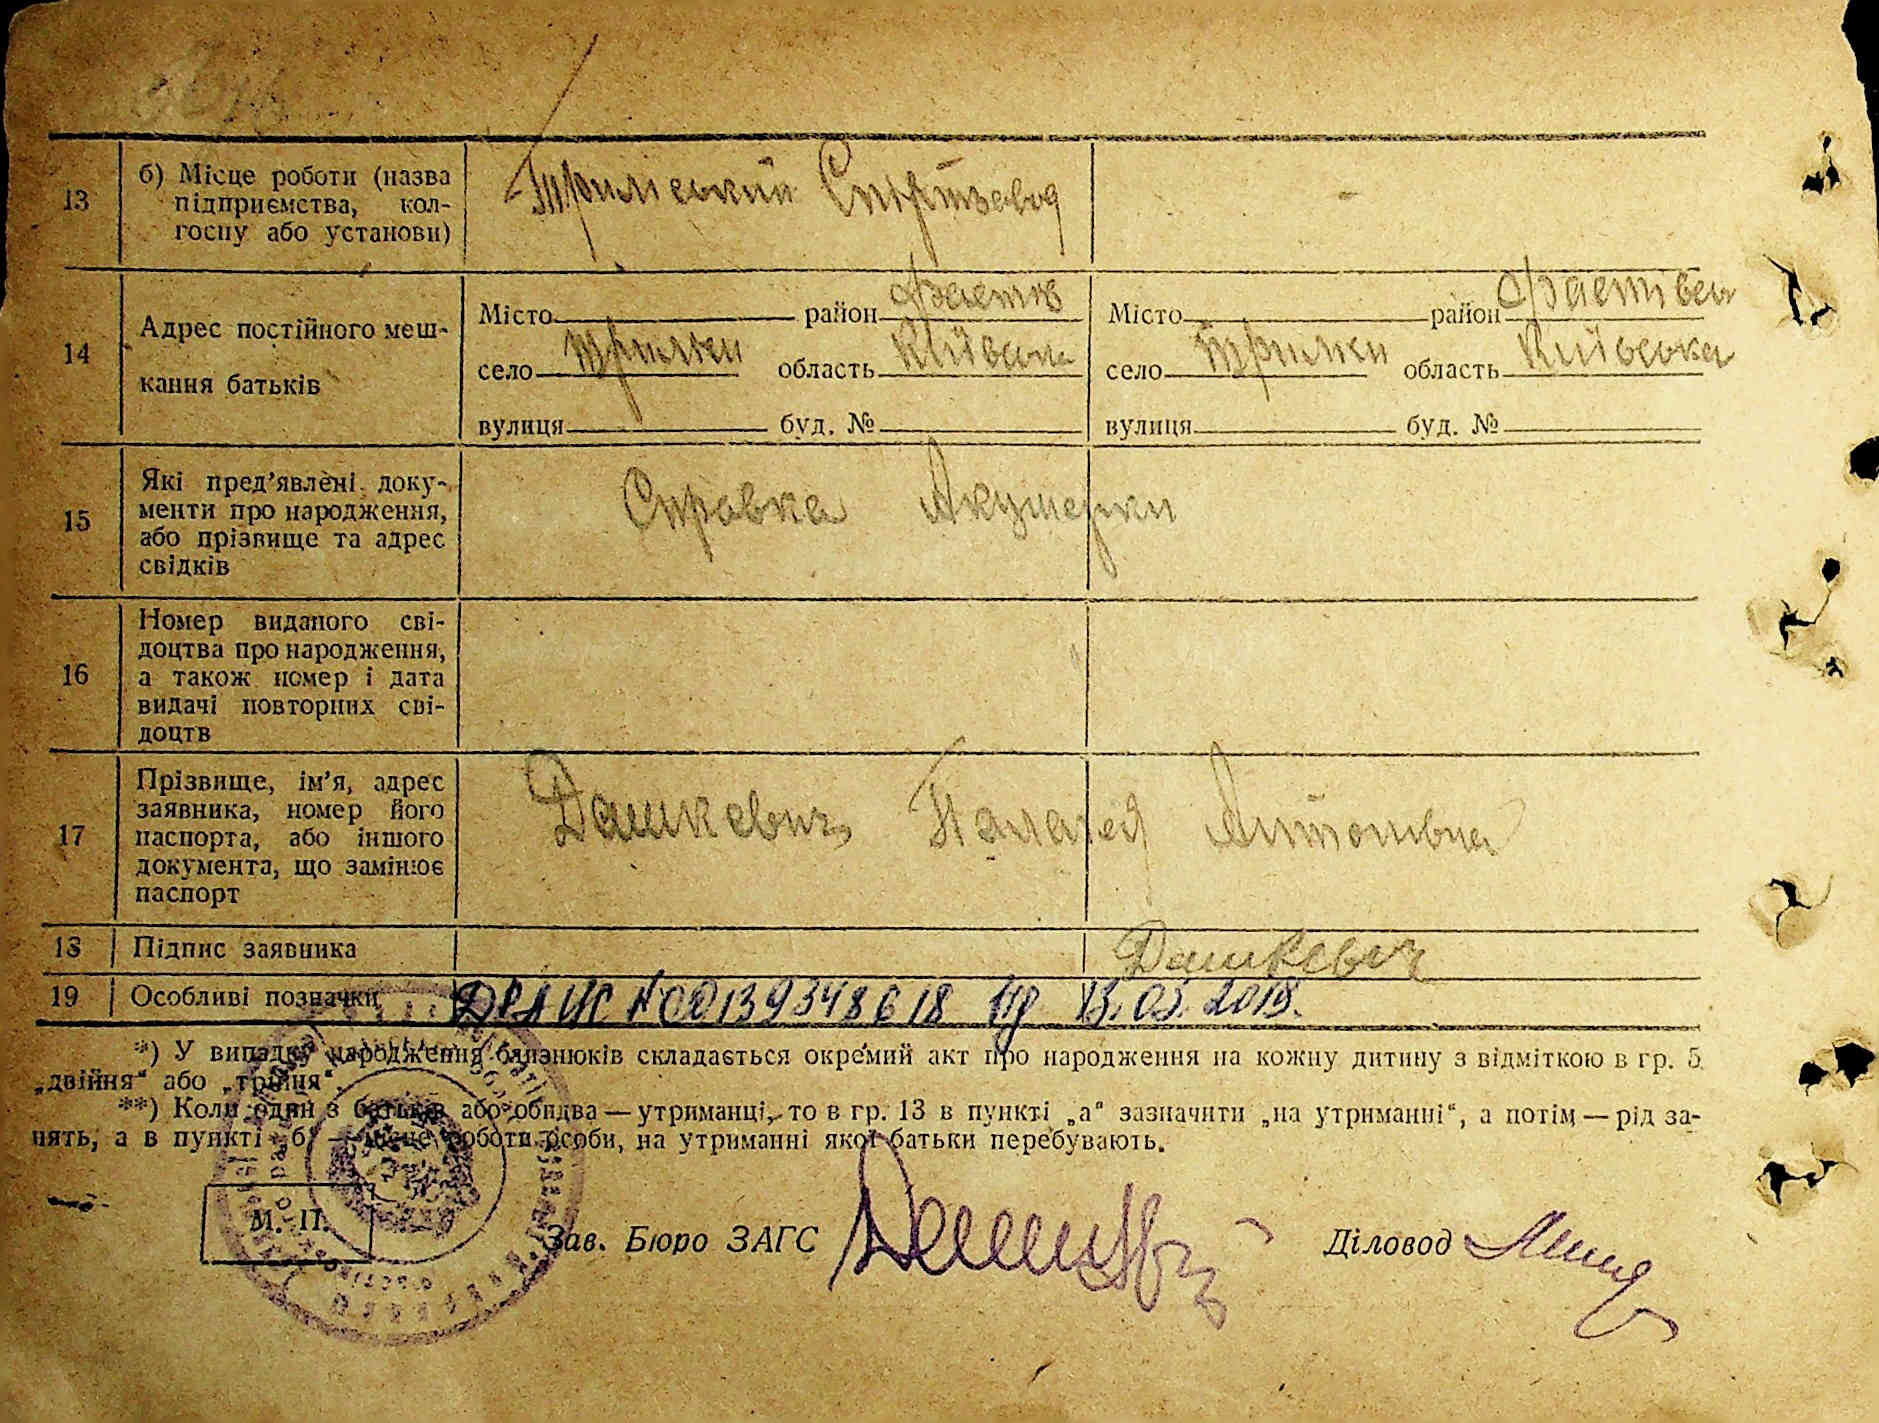 13
б) Місце роботи (назва
підприємства, кол-
госпу або установи)
Трилиський Спиртзавод
-
14
Адрес постійного меш-
кання батьків
Місто район Фастів
село Трилки область Київська
вулиця буд. №
Місто район Фастівсь
село Трилки область Київська
вулиця буд. №
15
Які пред'явлені доку-
менти про народження,
або прізвище та адрес
свідків
Справка Акушерки
16
Номер виданого сві-
доцтва про народження,
а також номер і дата
видачі повторних сві-
доцтв
17
Прізвище, ім'я, адрес
заявника, номер його
паспорта, або іншого
документа, що замінює
паспорт
Дашкевич Палагея Антонівна
18
Підпис заявника
Дашкевич
19
Особливі позначки
ДРАЦС №00139348618 від 13.03.2018.
*) У випадку народження близнюків складається окремий акт про народження на кожну дитину з відміткою в гр. 5
„двійня“ або „трійня“.
**) Коли один з батьків або обидва — утриманці, то в гр. 13 в пункті „а“ зазначити „на утриманні“, а потім — рід за-
нять, а в пункті „б“ — місце роботи особи, на утриманні якої батьки перебувають.
М. П.
Зав. Бюро ЗАГС
Діловод